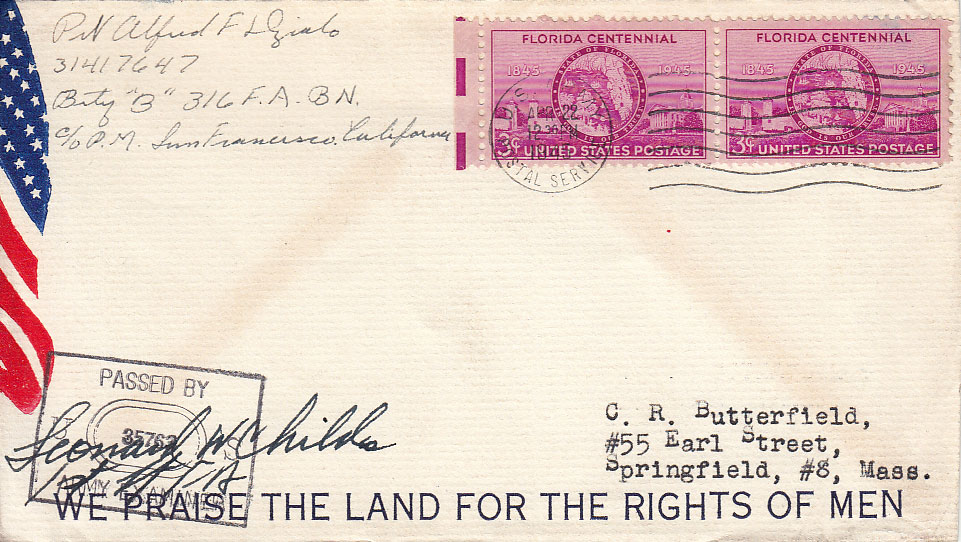 Pvt Alfred F
31417647
Bty "B" 316 F.A. BN.
c/o P.M. San Francisco. California
FLORIDA CENTENNIAL
1845 1945
STATE OF FLORIDA
3¢ UNITED STATES POSTAGE
FLORIDA CENTENNIAL
1845 1945
STATE OF FLORIDA
3¢ UNITED STATES POSTAGE
POSTAL SERVICE
PASSED BY
U S
35763
ARMY EXAMINER
Leonard W Childs
1st Lt F.A.
C. R. Butterfield,
#55 Earl Street,
Springfield, #8, Mass.
WE PRAISE THE LAND FOR THE RIGHTS OF MEN